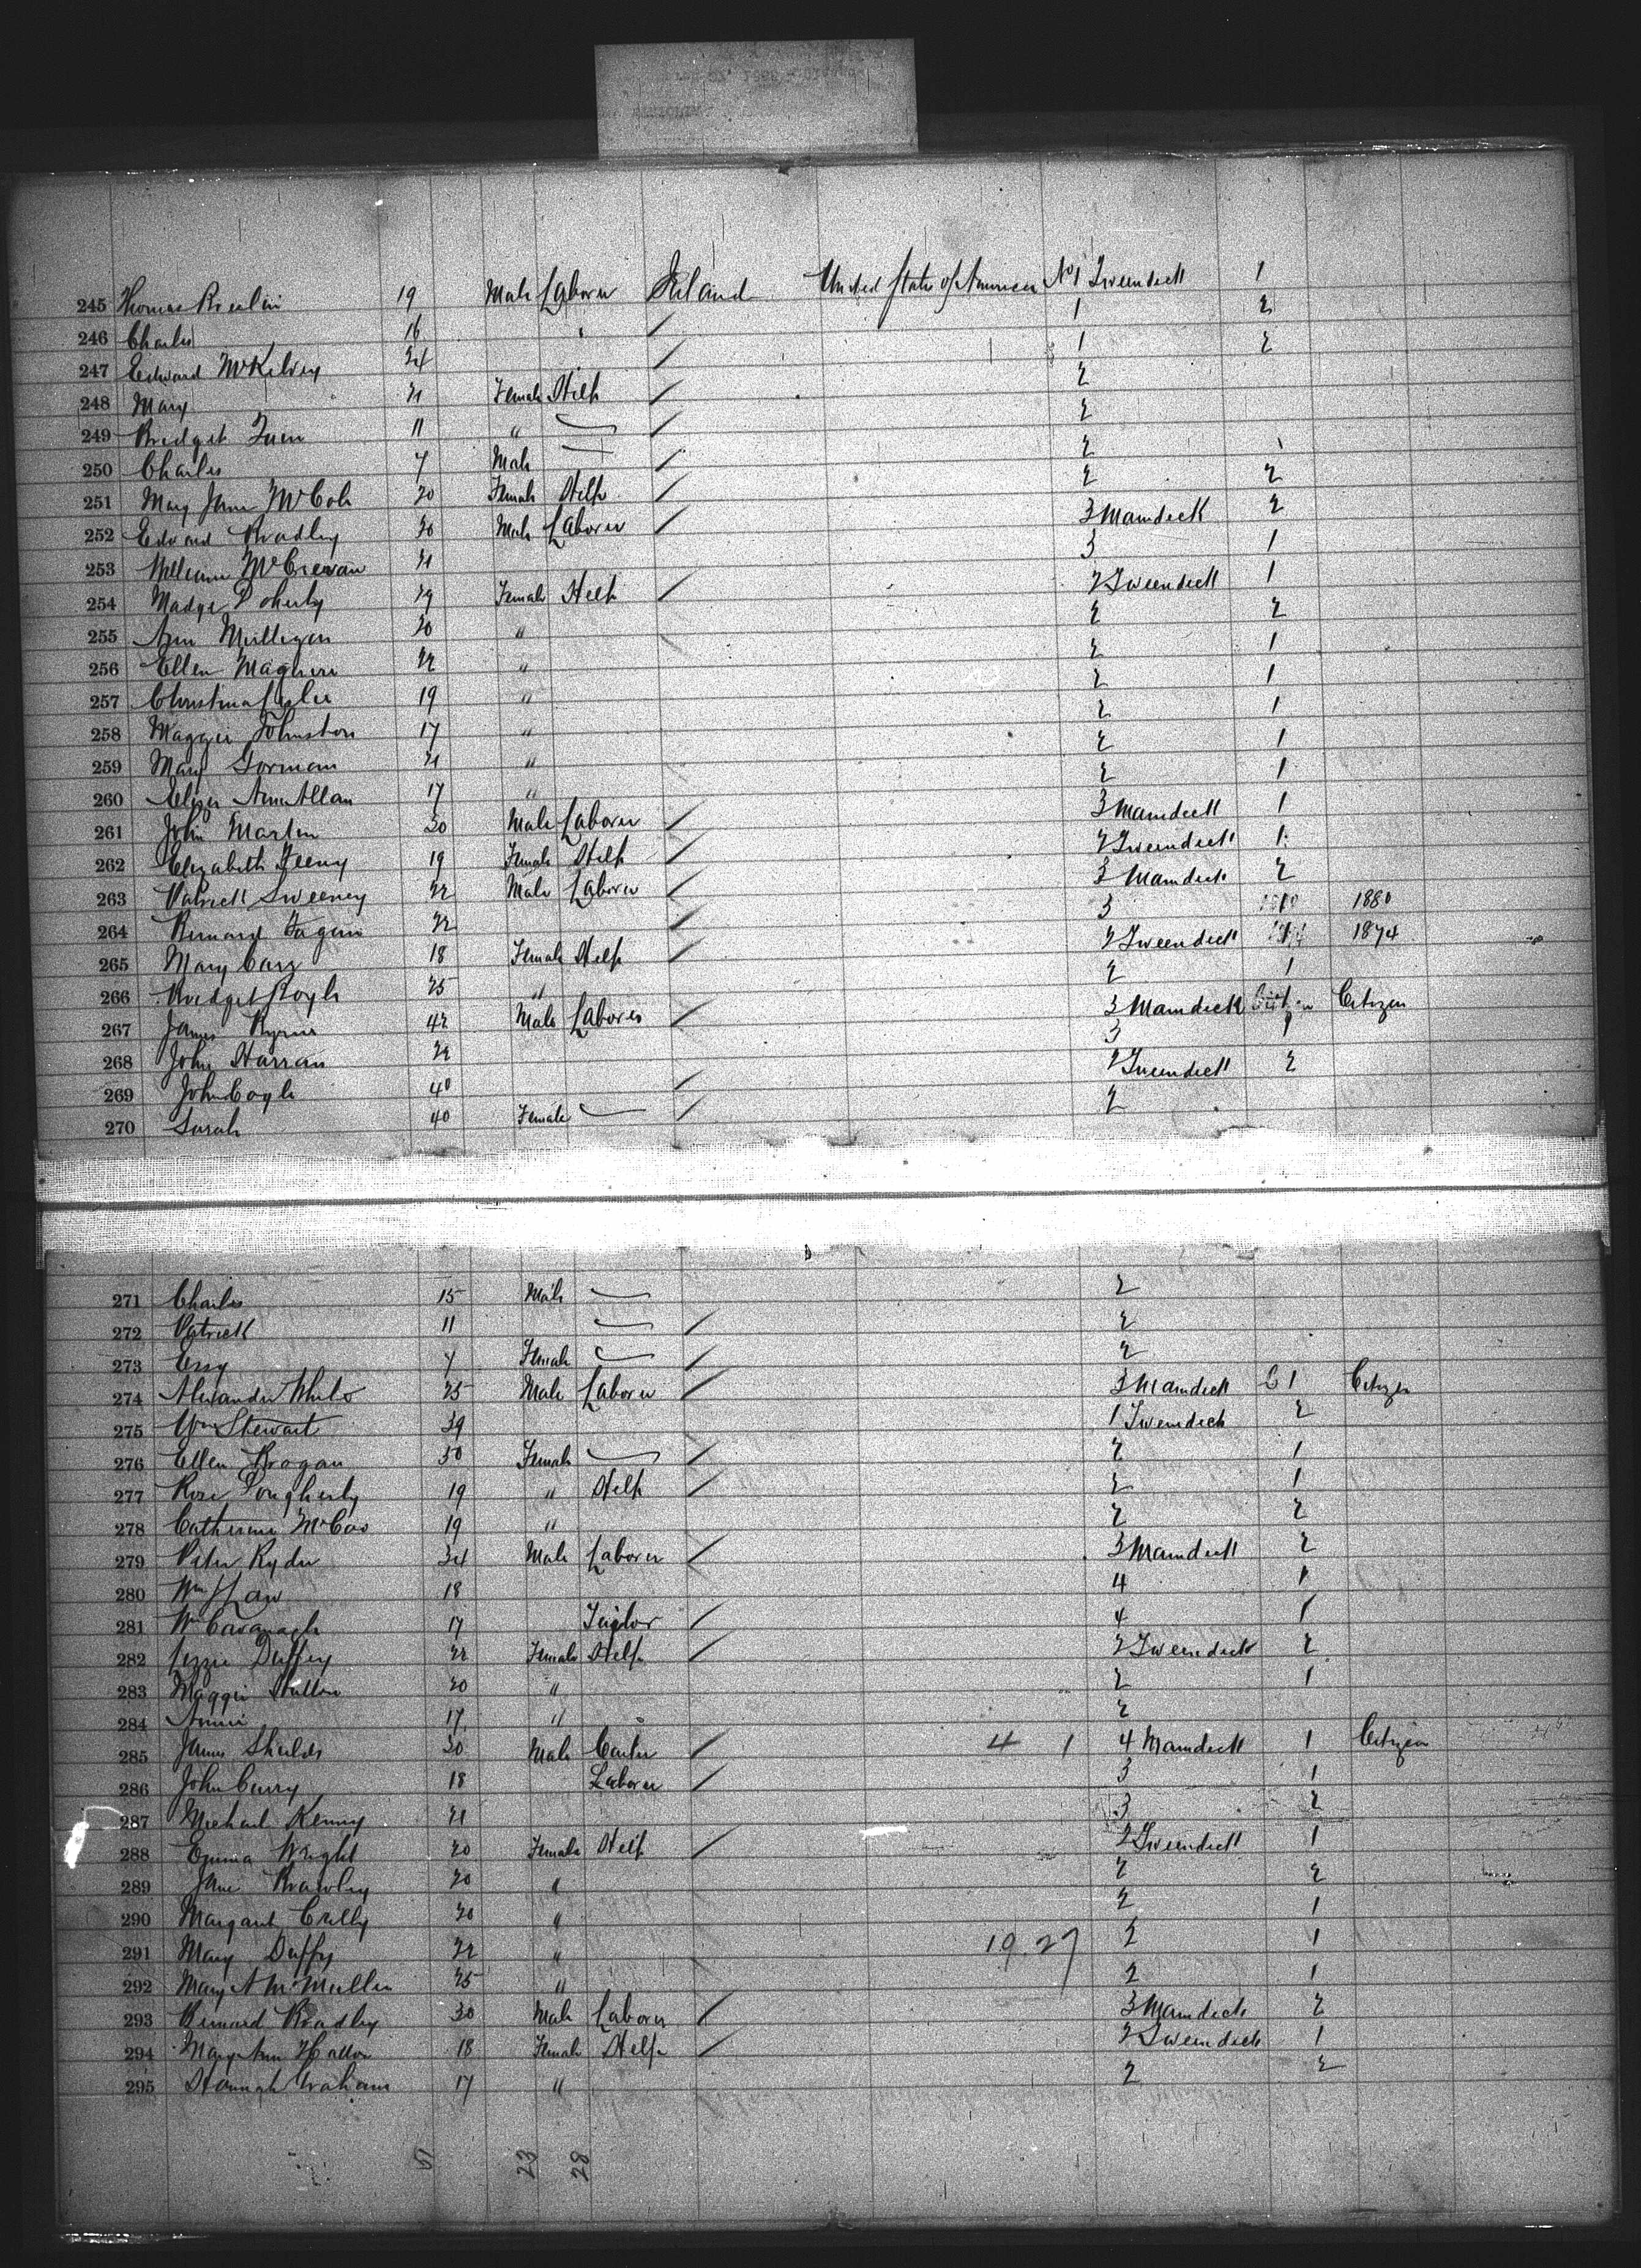 245 Thomas Breslin 19 Male Laborer Ireland United States of America No 1 Tweendeck 1
246 Charles 16 1 2
247 Edward McKelvey 24 1 2
248 Mary 21 Female Help 2
249 Bridget 11 " 2
250 Charles 7 Male 2
251 Mary Jane McCole 20 Female Help 2 2
252 Edward Bradley 20 Male Laborer 3 Maindeck 2
253 William 21 3 1
254 Madge Doherty 29 Female Help 2 Tweendeck 1
255 Ann Mulligan 20 " 2 2
256 Ellen Maguire 22 " 2 1
257 Christina Leslie 19 " 2 1
258 Maggie Johnston 17 " 2 1
259 Mary Gorman 21 " 2 1
260 Eliza Ann Allan 17 " 2 1
261 John Martin 20 Male Laborer 3 Maindeck 1
262 Elizabeth Feeny 19 Female Help 2 Tweendeck 1
263 Patrick Sweeney 22 Male Laborer 3 Maindeck 2
264 Bernard Fagan 22 3 1880
265 Mary Carr 18 Female Help 2 Tweendeck 1874
266 Bridget Boyle 25 " 2 1
267 James Byrne 42 Male Laborer 3 Maindeck Citizen Citizen
268 John Harran 22 3 1
269 John Coyle 40 2 Tweendeck 2
270 Sarah 40 Female 2
271 Charles 15 Male 2
272 Patrick 11 2
273 Essy 7 Female 2
274 Alexander White 25 Male Laborer 3 Maindeck 1 Citizen
275 Wm Stewart 29 1 Tweendeck 2
276 Ellen Brogan 50 Female 2 1
277 Rose Dougherty 19 " Help 2 1
278 Catherine McCoo 19 " 2 2
279 Peter Ryder 34 Male Laborer 3 Maindeck 2
280 Wm Law 18 4 1
281 Wm Cavanagh 17 Tailor 4 1
282 Lizzie Duffey 22 Female Help 2 Tweendeck 2
283 Maggie 20 " 2 1
284 Annie 17 " 2
285 James Shields 30 Male Carter 4 1 4 Maindeck 1 Citizen
286 John Curry 18 Laborer 3 1
287 Michael Kenny 21 3 2
288 Emma Wright 20 Female Help 2 Tweendeck 1
289 Jane Brawley 20 " 2 2
290 Margaret Crilly 20 " 2 1
291 Mary Duffy 22 " 19.27 2 1
292 Mary A McMullen 25 " 2 1
293 Bernard Bradley 30 Male Laborer 3 Maindeck 2
294 Mary Ann 18 Female Help 2 Tweendeck 1
295 Hannah Graham 17 " 2 2
51 23 28